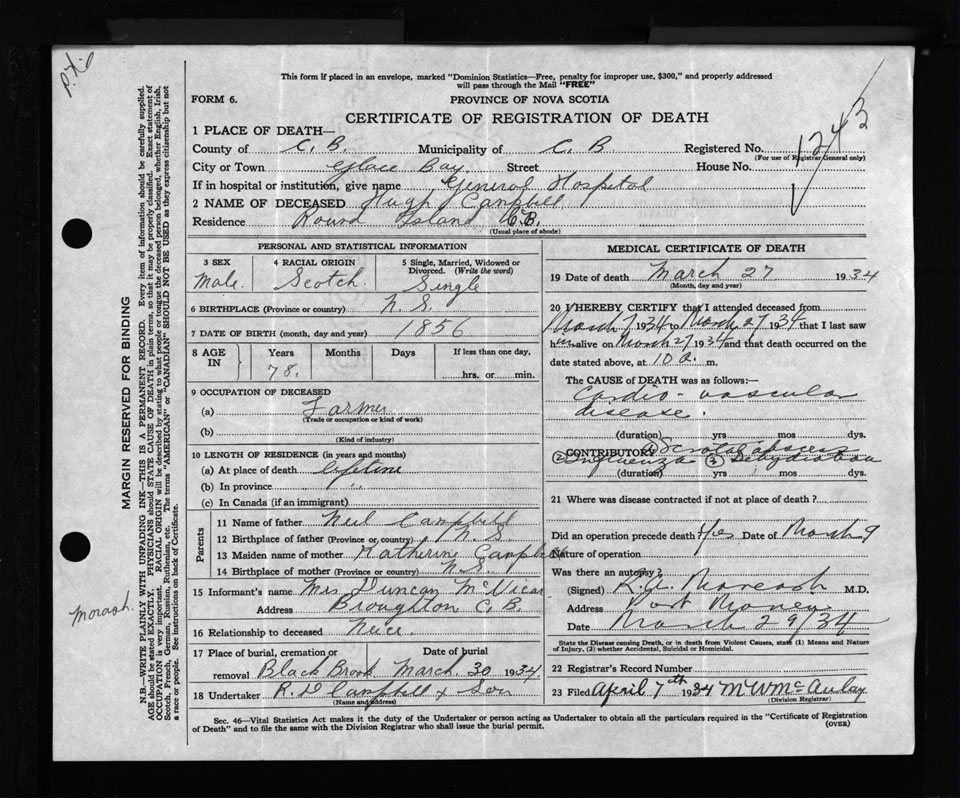 This form if placed in an envelope, marked "Dominion Statistics—Free, penalty for improper use, $300," and properly addressed
will pass through the Mail "FREE"
FORM 6.
PROVINCE OF NOVA SCOTIA
CERTIFICATE OF REGISTRATION OF DEATH
1243
1 PLACE OF DEATH—
County of C. B. Municipality of C. B Registered No.
(For use of Registrar General only)
City or Town Glace Bay Street House No.
If in hospital or institution, give name General Hospital
2 NAME OF DECEASED Hugh Campbell
Residence Round Island C.B.
(Usual place of abode)
PERSONAL AND STATISTICAL INFORMATION
3 SEX 4 RACIAL ORIGIN 5 Single, Married, Widowed or
Divorced. (Write the word)
Male. Scotch. Single
6 BIRTHPLACE (Province or country) N. S.
7 DATE OF BIRTH (month, day and year) 1856
8 AGE IN Years Months Days If less than one day,
78. hrs. or min.
9 OCCUPATION OF DECEASED
(a) Farmer
(Trade or occupation or kind of work)
(b)
(Kind of industry)
10 LENGTH OF RESIDENCE (in years and months)
(a) At place of death lifetime
(b) In province ,,
(c) In Canada (if an immigrant)
Parents
11 Name of father Neil Campbell
12 Birthplace of father (Province or country) N. S.
13 Maiden name of mother Katherine Campbell
14 Birthplace of mother (Province or country) N. S.
15 Informant's name Mrs Duncan McVicar
Address Broughton C. B.
16 Relationship to deceased Neice.
17 Place of burial, cremation or Date of burial
removal Black Brook March. 30 1934
18 Undertaker R. D Campbell & Son
(Name and address)
MEDICAL CERTIFICATE OF DEATH
19 Date of death March 27 1934
(Month, day and year)
20 I HEREBY CERTIFY that I attended deceased from
March 9 1934 to March 27 1934 that I last saw
him alive on March 27 1934 and that death occurred on the
date stated above, at 10 a. m.
The CAUSE of DEATH was as follows:—
Cardio-vascular
disease.
(duration) yrs mos dys.
CONTRIBUTORY (1) Scrotal abscess
(2) Influenza (3) Dehydration
(duration) yrs mos dys.
21 Where was disease contracted if not at place of death?
Did an operation precede death? Yes Date of March 9
Nature of operation
Was there an autopsy?
(Signed) M.D.
Address Port Morien
Date March 29/34
State the Disease causing Death, or in death from Violent Causes, state (1) Means and Nature
of Injury, (2) whether Accidental, Suicidal or Homicidal.
22 Registrar's Record Number
23 Filed April 7th 1934 M W McAulay
(Division Registrar)
Sec. 46—Vital Statistics Act makes it the duty of the Undertaker or person acting as Undertaker to obtain all the particulars required in the "Certificate of Registration
of Death" and to file the same with the Division Registrar who shall issue the burial permit.
(OVER)
MARGIN RESERVED FOR BINDING
N.B.—WRITE PLAINLY WITH UNFADING INK—THIS IS A PERMANENT RECORD. Every item of information should be carefully supplied.
AGE should be stated EXACTLY. PHYSICIANS should STATE CAUSE OF DEATH in plain terms, so that it may be properly classified. Exact statement of
OCCUPATION is very important. RACIAL ORIGIN will be described by stating to what people or tongue the deceased person belonged, whether English, Irish,
Scotch, French, German, Russian, Ruthenian, etc. The terms "AMERICAN" or "CANADIAN" SHOULD NOT BE USED as they express citizenship but not
a race or people. See instructions on back of Certificate.
Morash.